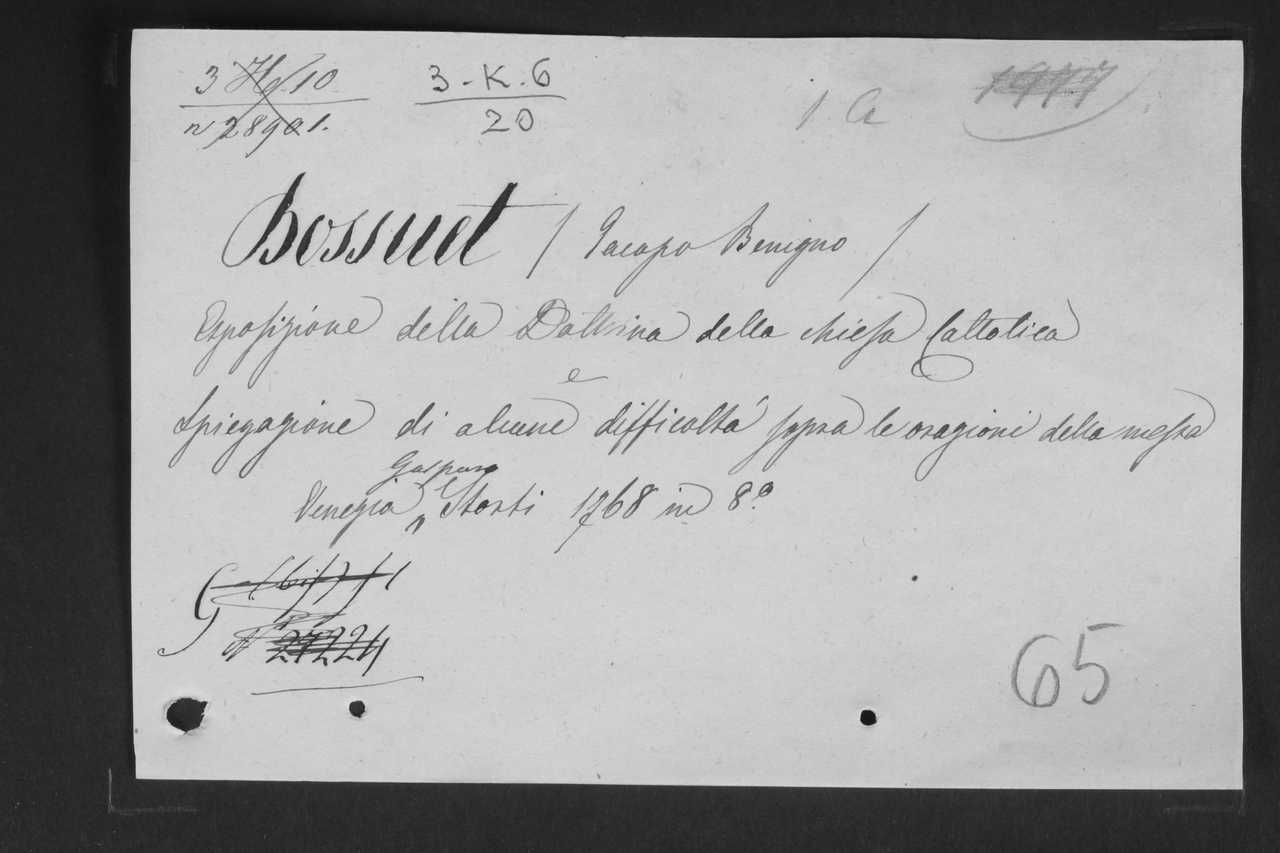 3 Hg. 10 3-K.6
n 28901. 20
1977
Bossuet / Jacopo Benigno /
Esposizione della Dottrina della chiesa Cattolica
e
Spiegazione di alcune difficoltà sopra le orazioni della messa
Gaspare
Venezia Storti 1768 in 8º
27224
65